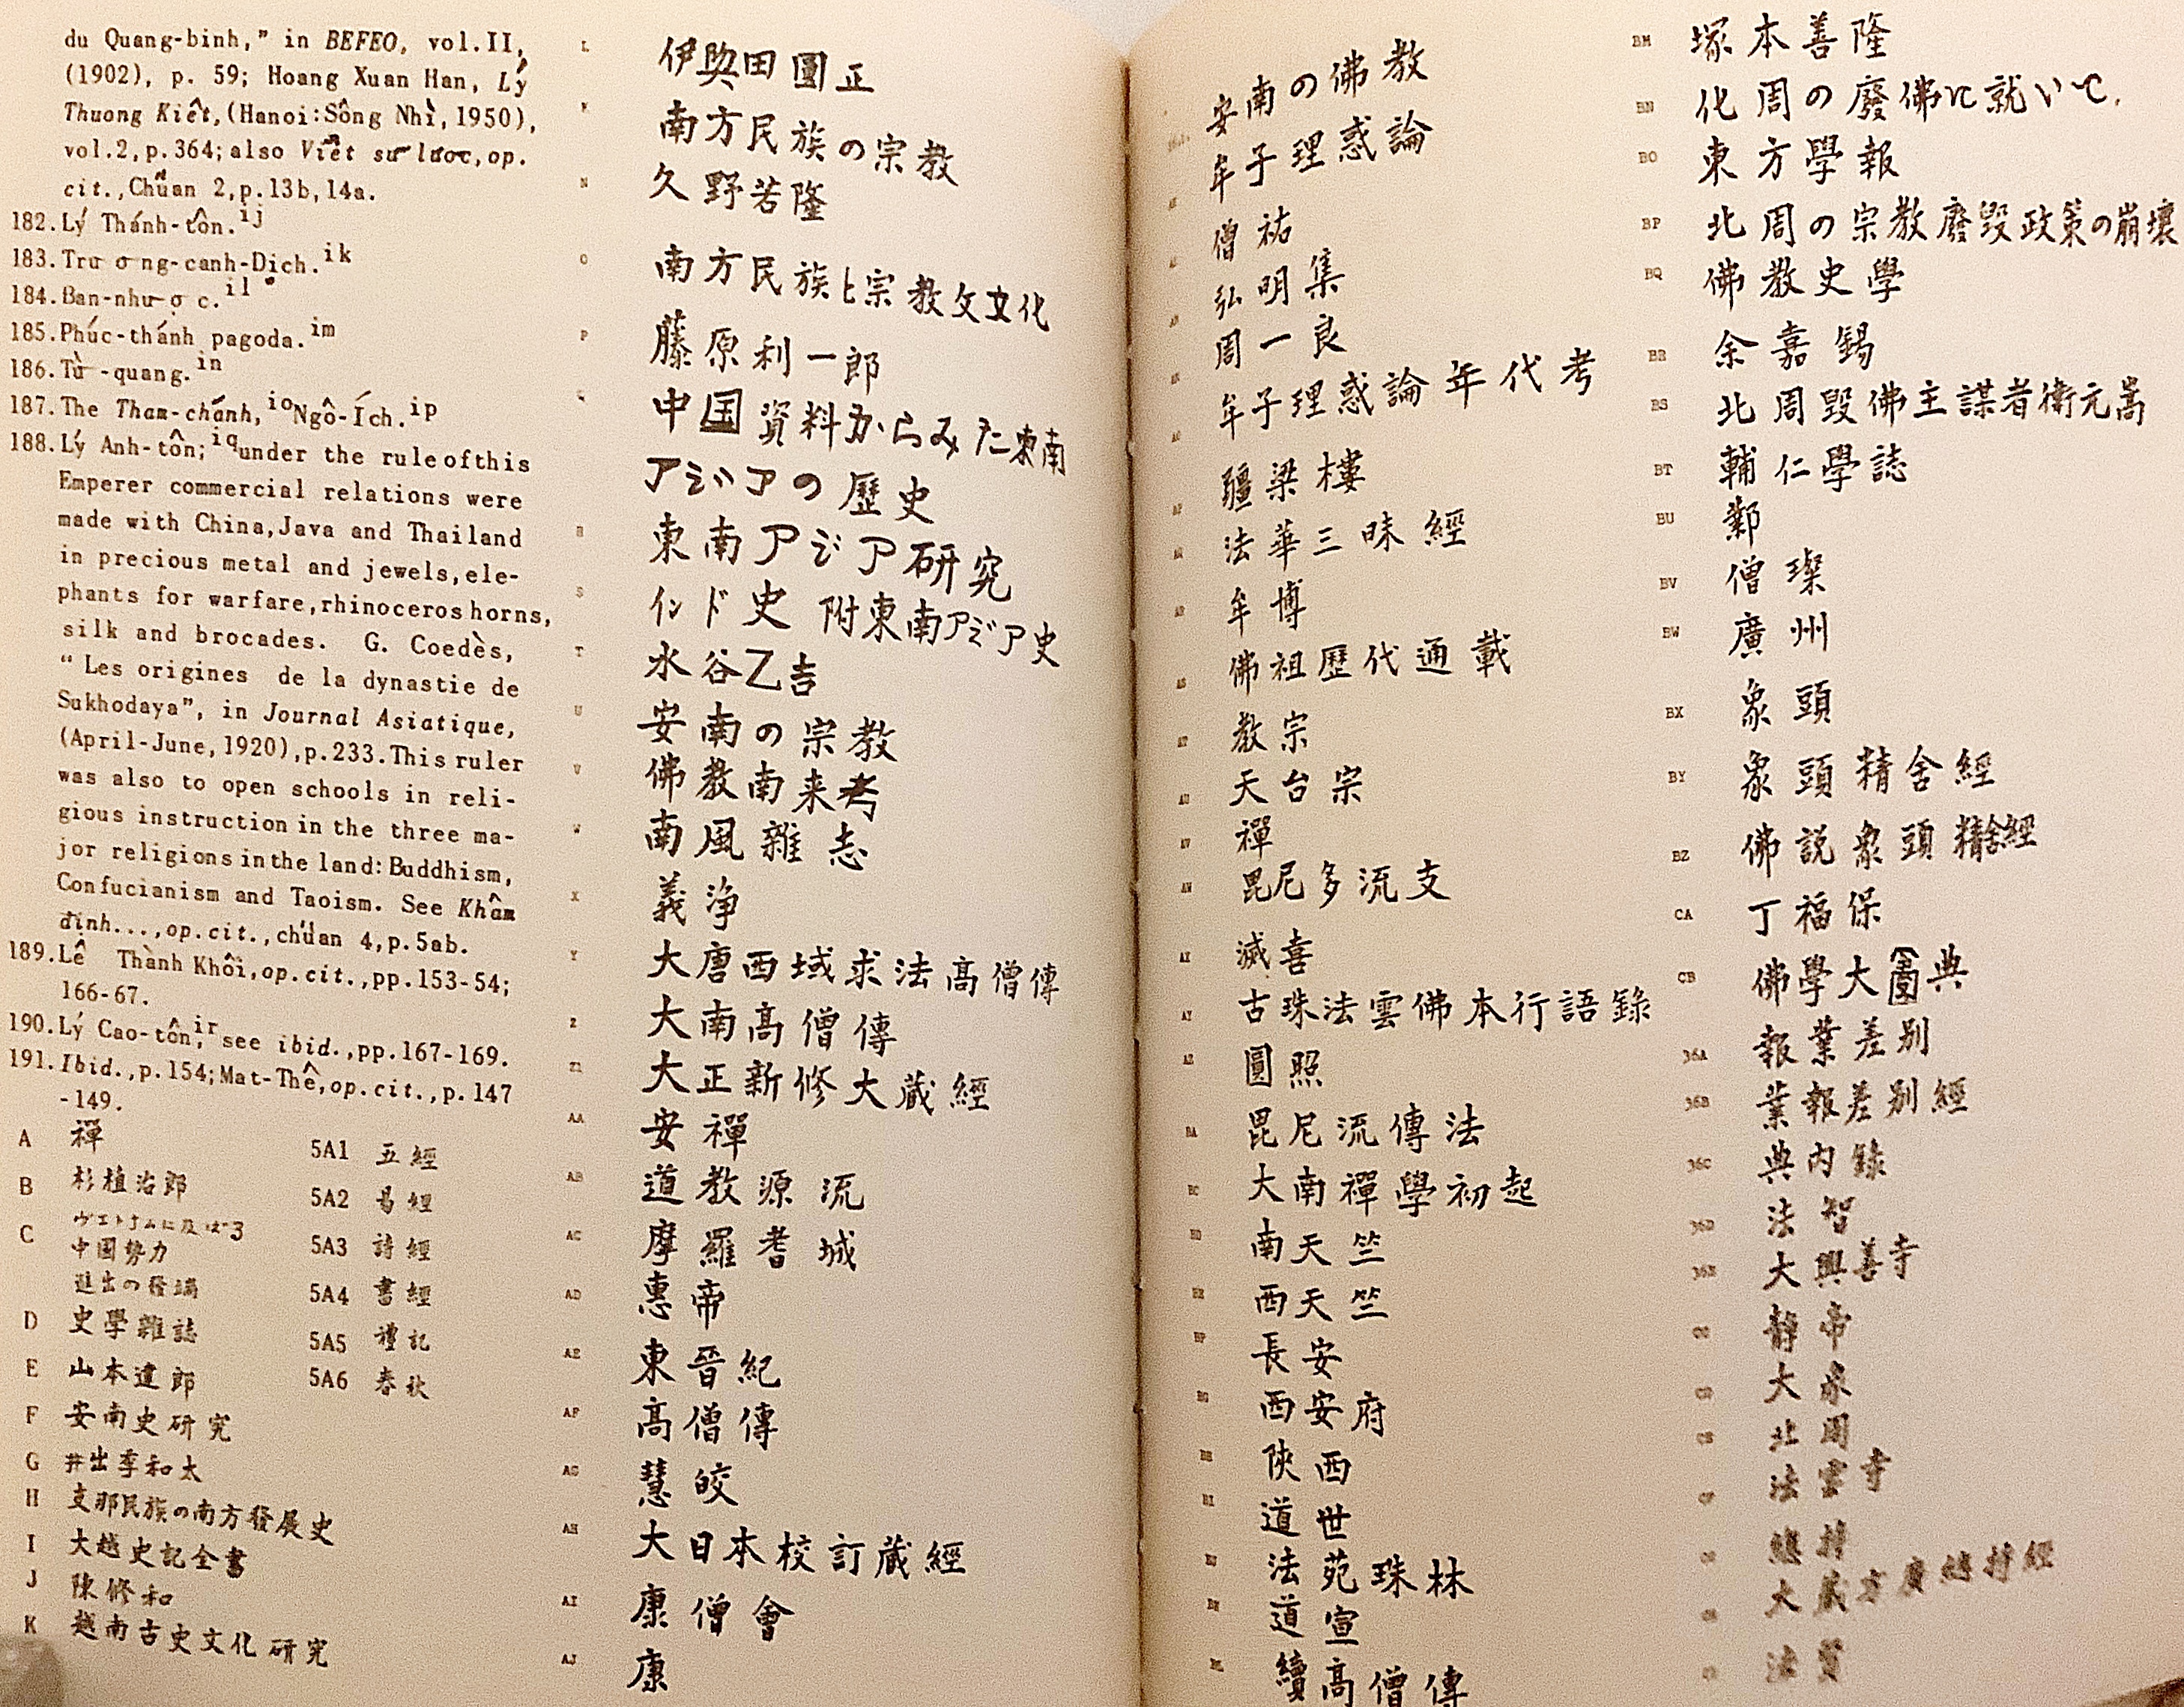 du Quang-binh," in BEFEO, vol.II,
(1902), p. 59; Hoang Xuan Han, Lý
Thuong Kiêt, (Hanoi:Sông Nhì, 1950),
vol.2,p.364; also Viêt sư lươc, op.
cit., Chüan 2,p.13b,14a.
182. Lý Thánh-tôn. ij
183. Trư ơ ng-canh-Dịch. ik
184. Ban-như-ợ c. il
185. Phúc-thánh pagoda. im
186. Từ -quang. in
187. The Tham-chánh, io Ngô-Ích. ip
188. Lý Anh-tôn; iq under the rule of this
Emperer commercial relations were
made with China, Java and Thailand
in precious metal and jewels, ele-
phants for warfare, rhinoceros horns,
silk and brocades. G. Coedès,
"Les origines de la dynastie de
Sukhodaya", in Journal Asiatique,
(April-June, 1920), p.233. This ruler
was also to open schools in reli-
gious instruction in the three ma-
jor religions in the land: Buddhism,
Confucianism and Taoism. See Khâm
định..., op. cit., chüan 4, p.5ab.
189. Lê Thành Khôi, op. cit., pp.153-54;
166-67.
190. Lý Cao-tôn, ir see ibid., pp.167-169.
191. Ibid., p.154; Mat-Thê, op. cit., p.147
-149.
A 禪
B 杉植治郎
C ヴエトナムに及ぼす
中國勢力
進出の發端
D 史學雜誌
E 山本達郎
F 安南史研究
G 井出季和太
H 支那民族の南方發展史
I 大越史記全書
J 陳修和
K 越南古史文化研究
5A1 五經
5A2 易經
5A3 詩經
5A4 書經
5A5 禮記
5A6 春秋
L 伊與田圓正
南方民族の宗教
N 久野若隆
O 南方民族と宗教文化
P 藤原利一郎
中国資料からみた東南
アジアの歷史
東南アジア研究
S インド史 附東南アジア史
T 水谷乙吉
U 安南の宗教
V 佛教南来考
W 南風雜志
X 義淨
Y 大唐西域求法高僧傳
Z 大南高僧傳
Z1 大正新修大蔵經
AA 安禪
AB 道教源流
AC 摩羅耆城
AD 惠帝
AE 東晉紀
AF 高僧傳
AG 慧皎
AH 大日本校訂蔵經
AI 康僧會
AJ 康
安南の佛教
牟子理惑論
僧祐
弘明集
周一良
牟子理惑論年代考
疆梁樓
法華三昧經
牟博
佛祖歷代通載
教宗
天台宗
禪
毘尼多流支
滅喜
古珠法雲佛本行語錄
圓照
BA 毘尼流傳法
BC 大南禪學初起
BD 南天竺
BE 西天竺
BF 長安
BG 西安府
BH 陝西
BI 道世
法苑珠林
道宣
續高僧傳
BM 塚本善隆
BN 化周の廢佛に就いて.
BO 東方學報
BP 北周の宗教廢毀政策の崩壞
BQ 佛教史學
BR 余嘉錫
BS 北周毀佛主謀者衛元嵩
BT 輔仁學誌
BU 鄴
BV 僧璨
BW 廣州
BX 象頭
BY 象頭精舍經
BZ 佛説象頭精舍經
CA 丁福保
CB 佛學大典
36A 報業差別
36B 業報差別經
36C 典內錄
36D 法智
36E 大興善寺
CC 靜帝
CD 大
CE 北周
CF 法雲寺
總持
大方廣總持經
法